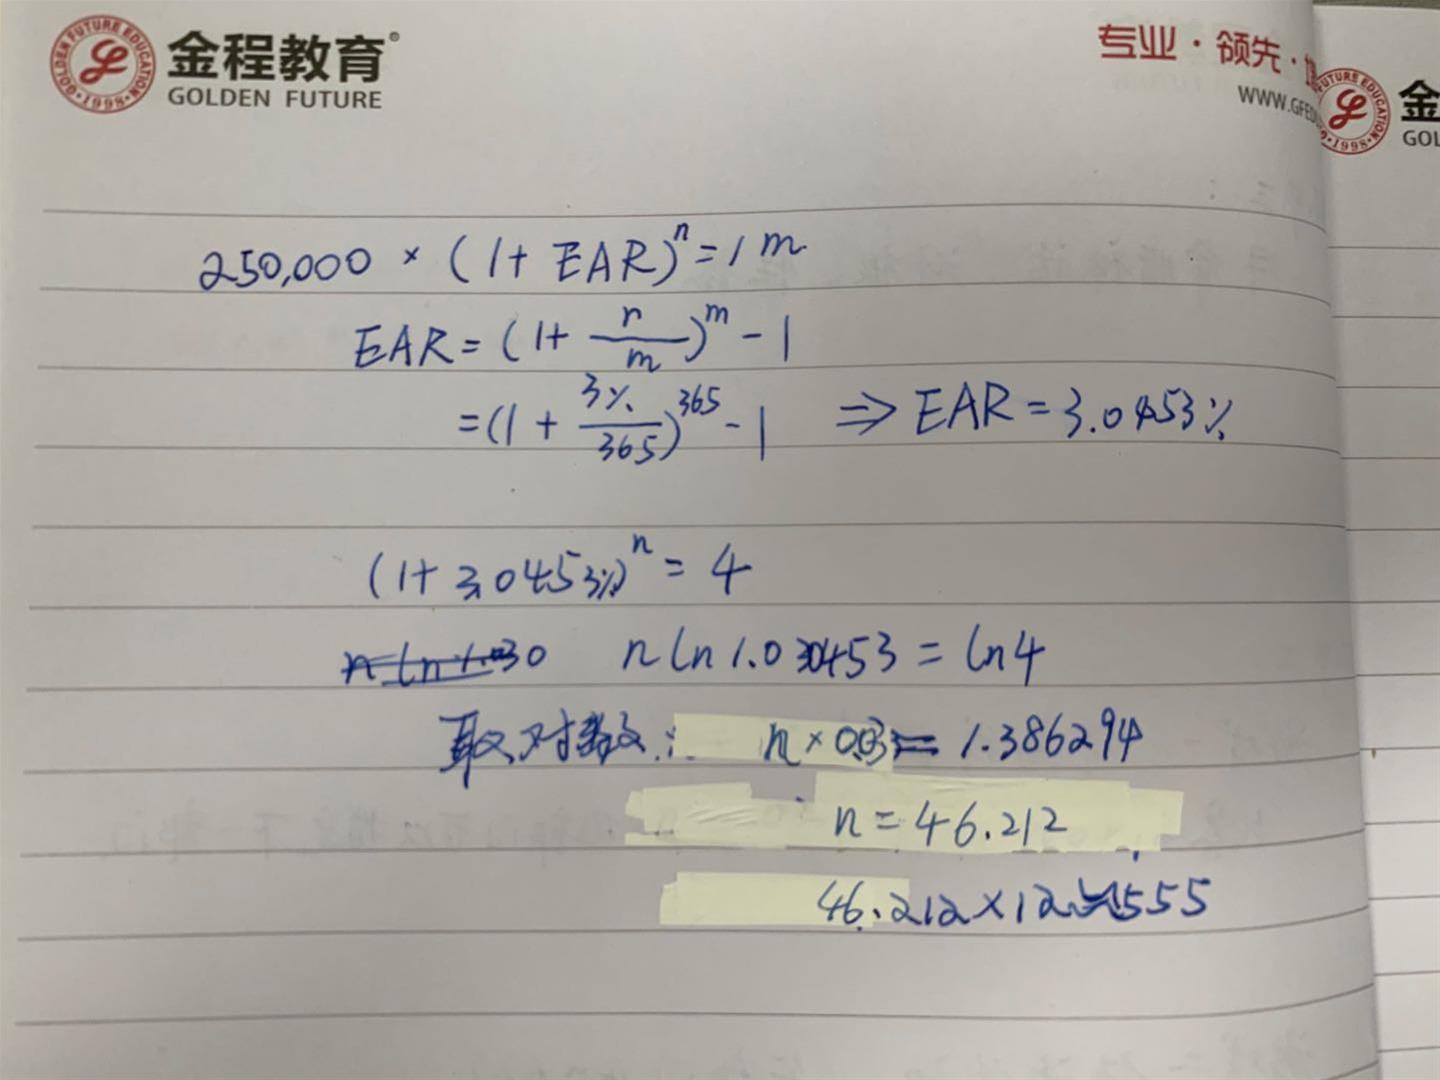 金程教育®
GOLDEN FUTURE
GOLDEN FUTURE EDUCATION
·1998·
专业·领先·
WWW.GFED
FUTURE EDUCATION
·1998·
金
GOL
250,000 × (1+ EAR)ⁿ = 1 m
EAR = (1+ r/m)ᵐ - 1
= (1 + 3%/365)³⁶⁵ - 1 ⇒ EAR = 3.0453%
(1+ 3.0453%)ⁿ = 4
n ln 1.030 n ln 1.030453 = ln4
取对数: n × 0.03 = 1.386294
n = 46.212
46.212×12≈555